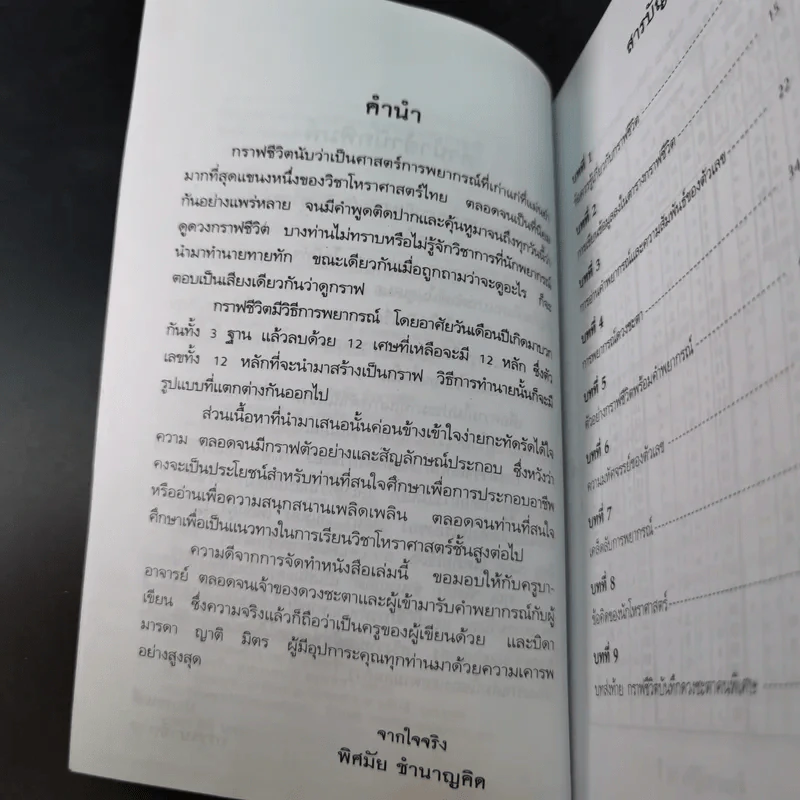 คำนำ
กราฟชีวิตนับว่าเป็นศาสตร์การพยากรณ์ที่เก่าแก่ที่แม่นยำ
มากที่สุดแขนงหนึ่งของวิชาโหราศาสตร์ไทย ตลอดจนเป็นที่นิยม
กันอย่างแพร่หลาย จนมีคำพูดติดปากและคุ้นหูมาจนถึงทุกวันนี้ว่า
ดูดวงกราฟชีวิต บางท่านไม่ทราบหรือไม่รู้จักวิชาการที่นักพยากรณ์
นำมาทำนายทายทัก ขณะเดียวกันเมื่อถูกถามว่าจะดูอะไร ก็จะ
ตอบเป็นเสียงเดียวกันว่าดูกราฟ
กราฟชีวิตมีวิธีการพยากรณ์ โดยอาศัยวันเดือนปีเกิดมาบวก
กันทั้ง 3 ฐาน แล้วลบด้วย 12 เศษที่เหลือจะมี 12 หลัก ซึ่งตัว
เลขทั้ง 12 หลักที่จะนำมาสร้างเป็นกราฟ วิธีการทำนายนั้นก็จะมี
รูปแบบที่แตกต่างกันออกไป
ส่วนเนื้อหาที่นำมาเสนอนั้นค่อนข้างเข้าใจง่ายกะทัดรัดได้ใจ
ความ ตลอดจนมีกราฟตัวอย่างและสัญลักษณ์ประกอบ ซึ่งหวังว่า
คงจะเป็นประโยชน์สำหรับท่านที่สนใจศึกษาเพื่อการประกอบอาชีพ
หรืออ่านเพื่อความสนุกสนานเพลิดเพลิน ตลอดจนท่านที่สนใจ
ศึกษาเพื่อเป็นแนวทางในการเรียนวิชาโหราศาสตร์ชั้นสูงต่อไป
ความดีจากการจัดทำหนังสือเล่มนี้ ขอมอบให้กับครูบา-
อาจารย์ ตลอดจนเจ้าของดวงชะตาและผู้เข้ามารับคำพยากรณ์กับผู้
เขียน ซึ่งความจริงแล้วก็ถือว่าเป็นครูของผู้เขียนด้วย และบิดา
มารดา ญาติ มิตร ผู้มีอุปการะคุณทุกท่านมาด้วยความเคารพ
อย่างสูงสุด
จากใจจริง
พิศมัย ชำนาญคิด
บทที่ 1
15
บทที่ 2
การเติมข้อมูลลงในตารางกราฟชีวิต
22
บทที่ 3
การอ่านคำพยากรณ์และความสัมพันธ์ของตัวเลข
บทที่ 4
การพยากรณ์ดวงชะตา
บทที่ 5
ตัวอย่างกราฟชีวิตพร้อมคำพยากรณ์
บทที่ 6
ความมหัศจรรย์ของตัวเลข
บทที่ 7
เคล็ดลับการพยากรณ์
บทที่ 8
ข้อคิดของนักโหราศาสตร์
บทที่ 9
บทส่งท้าย กราฟชีวิตบันทึกดวงชะตาคนพิเศษ